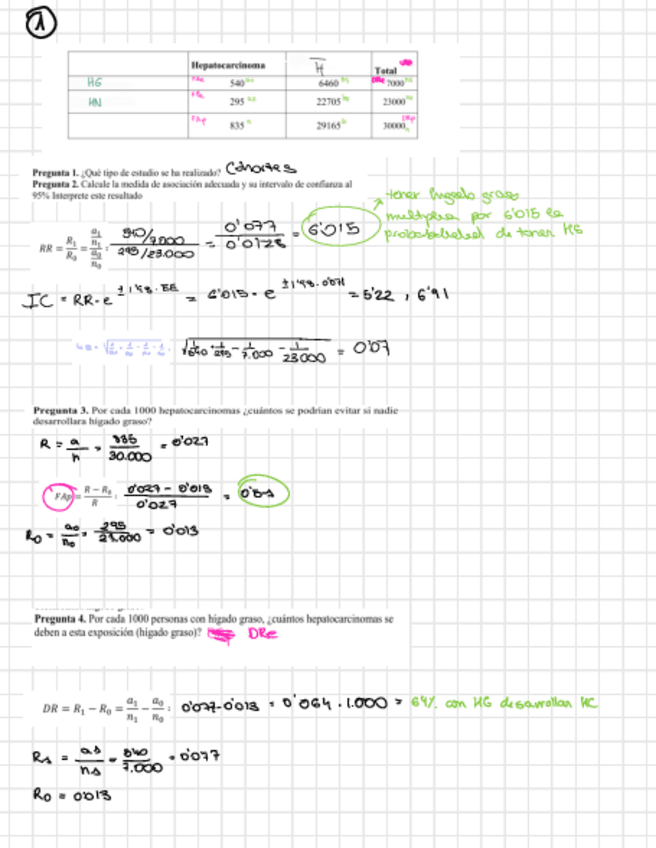 1
Hepatocarcinoma H Total
HG 540 6460 7000
HN 295 22705 23000
835 29165 30000
Pregunta 1. ¿Qué tipo de estudio se ha realizado? Cohortes
Pregunta 2. Calcule la medida de asociación adecuada y su intervalo de confianza al
95% Interprete este resultado
RR = R₁/R₀ = (a₁/n₁)/(a₀/n₀) : (540/7000)/(295/23.000) = 0'077/0'0128 = 6'015
→ tener hígado graso
multiplica por 6'015 la
probabilidad de tener HG
IC = RR·e^(±1'98·EE) = 6'015·e^(±1'98·0'071) = 5'22, 6'91
√(1/540 + 1/295 - 1/7.000 - 1/23000) = 0'07
Pregunta 3. Por cada 1000 hepatocarcinomas ¿cuántos se podrían evitar si nadie
desarrollara hígado graso?
R = a/n = 835/30.000 = 0'027
FAp = (R - R₀)/R : (0'027 - 0'013)/0'027 = 0'51
R₀ = a₀/n₀ = 295/23.000 = 0'013
Pregunta 4. Por cada 1000 personas con hígado graso, ¿cuántos hepatocarcinomas se
deben a esta exposición (hígado graso)? DRe
DR = R₁ - R₀ = a₁/n₁ - a₀/n₀ : 0'077-0'013 = 0'064 · 1.000 = 64% con HG desarrollan HC
R₁ = a₁/n₁ = 540/7.000 = 0'077
R₀ = 0'013